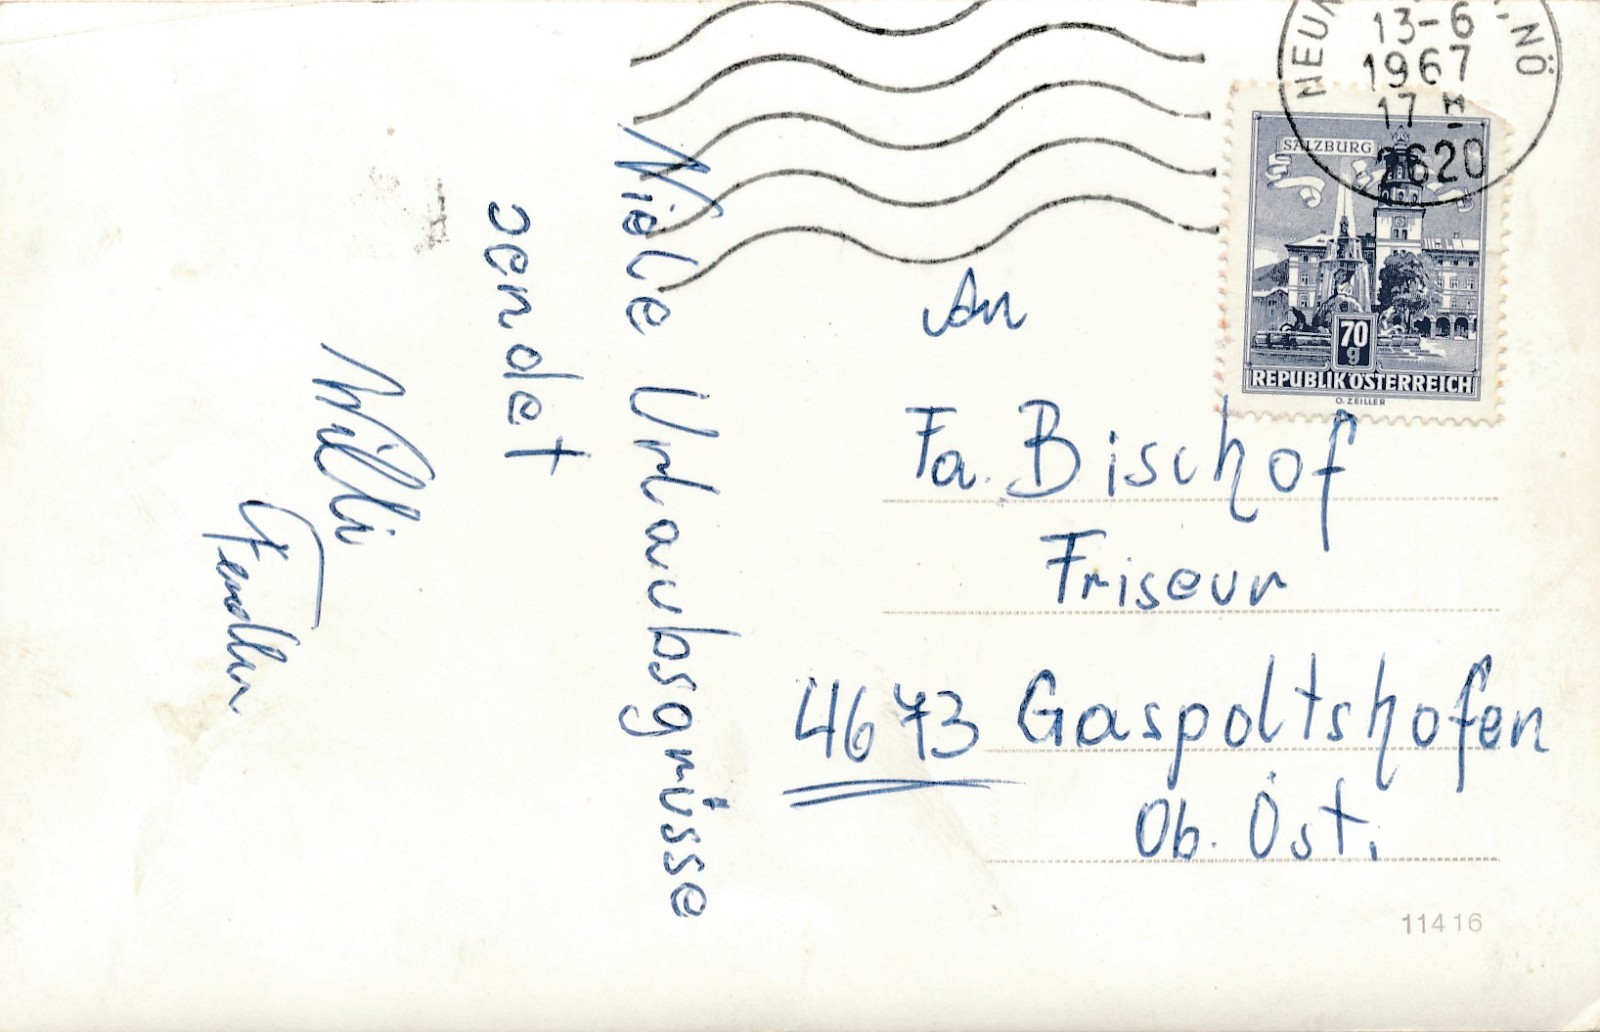 Viele Urlaubsgrüsse
sendet
Willi
An
Fa. Bischof
Friseur
4673 Gaspoltshofen
Ob. Öst.
13-6
1967
17 H
2620
NÖ
SALZBURG
70
g
REPUBLIK ÖSTERREICH
O. ZEILLER
11416